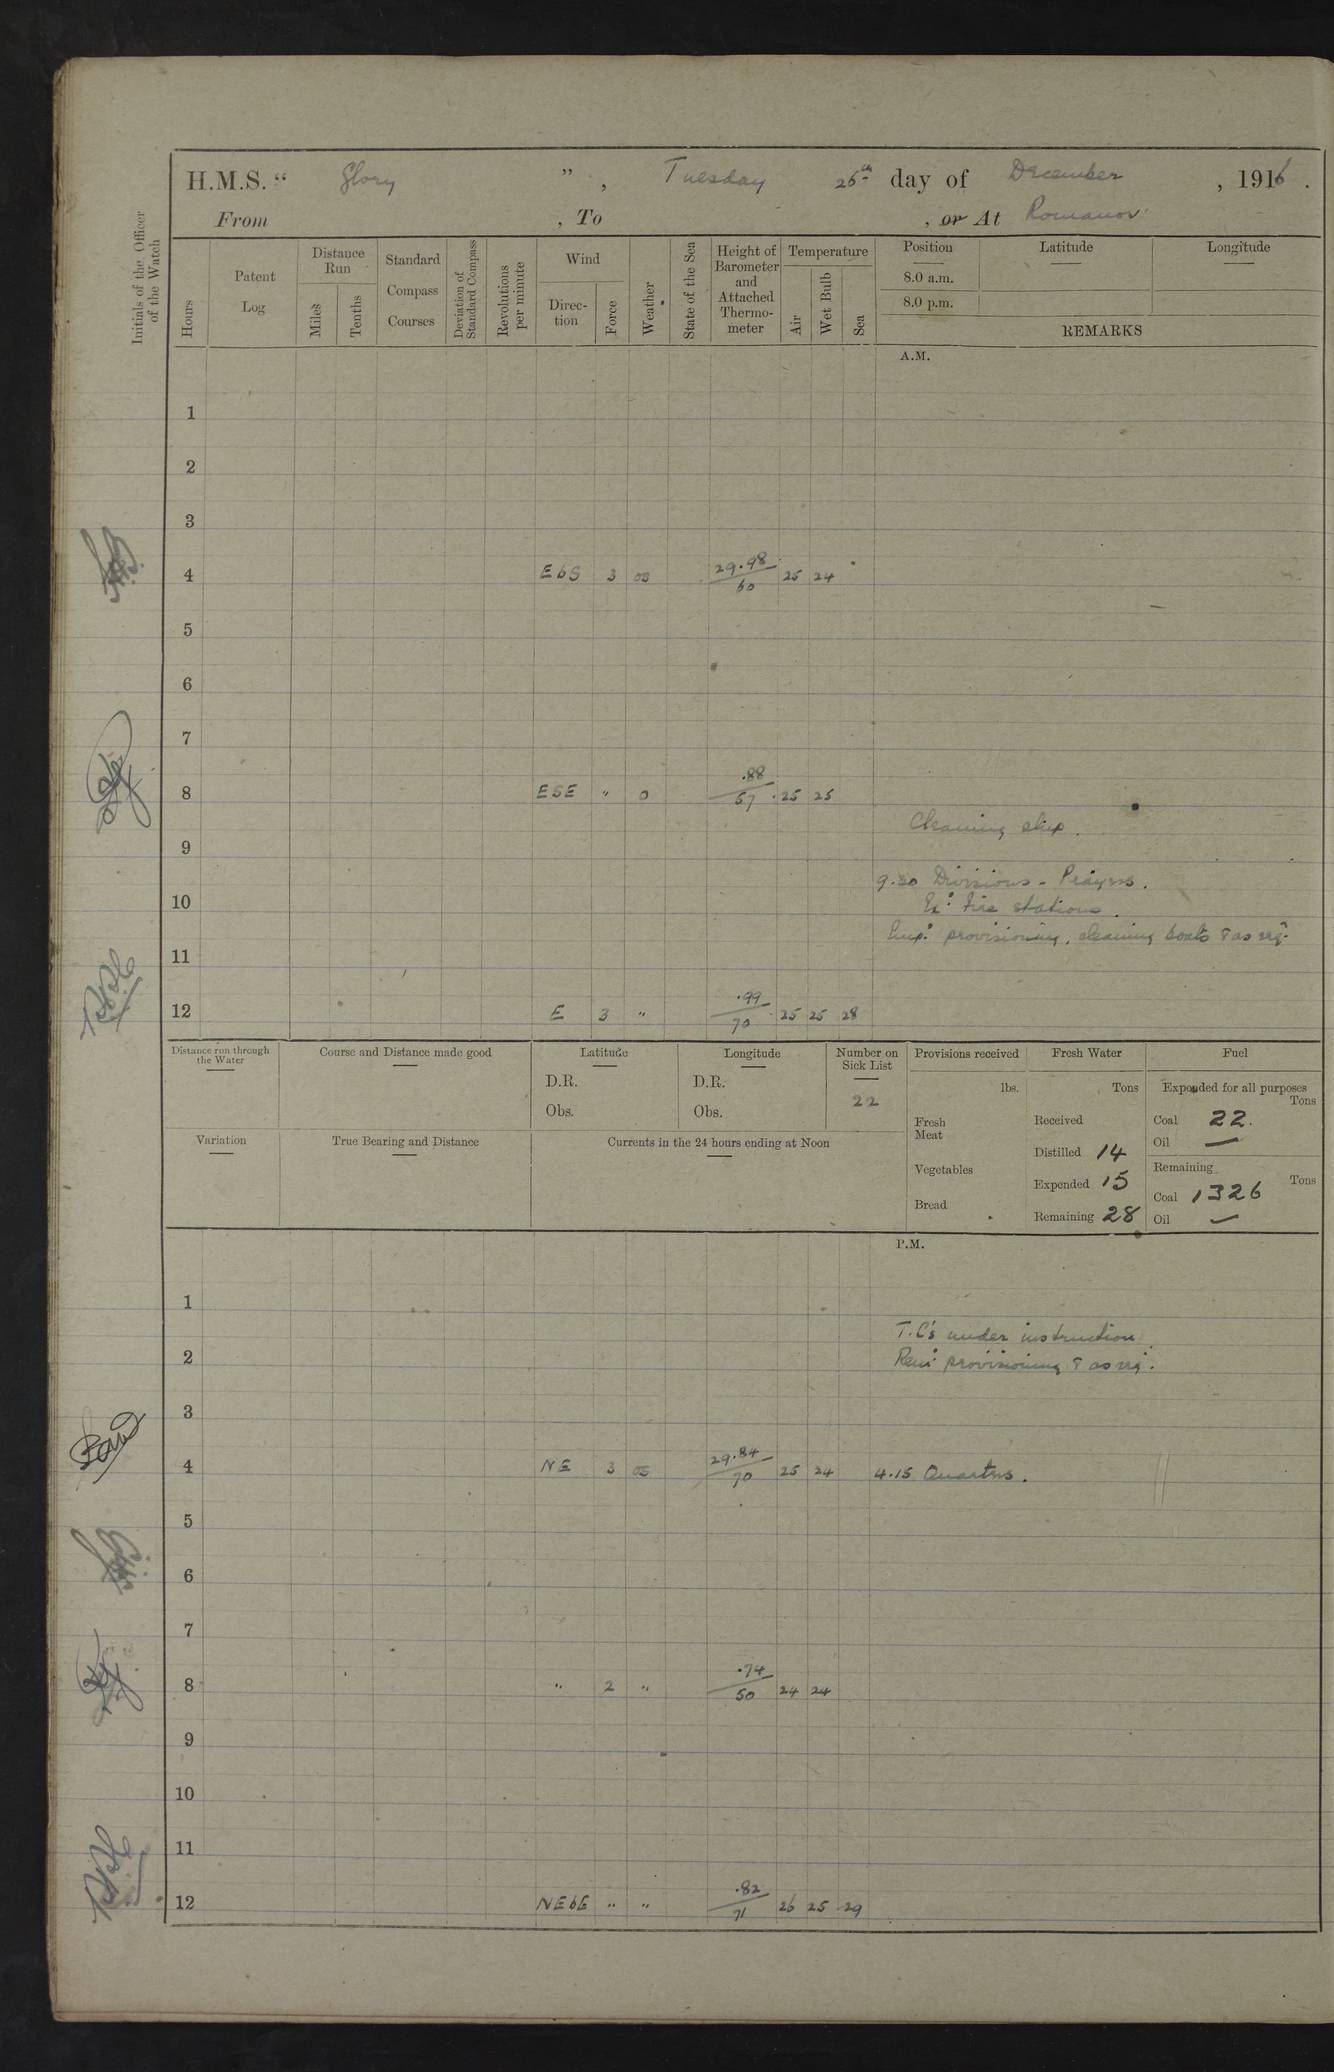 H.M.S. “ Glory ” , Tuesday 26th day of December , 1916 .
From , To , or At Romanov
Initials of the Officer of the Watch
Hours
Patent Log
Distance Run
Miles
Tenths
Standard Compass Courses
Deviation of Standard Compass
Revolutions per minute
Wind
Direc-tion
Force
Weather
State of the Sea
Height of Barometer and Attached Thermo-meter
Temperature
Air
Wet Bulb
Sea
Position Latitude Longitude
8.0 a.m.
8.0 p.m.
REMARKS
A.M.
1
2
3
4 EbS 3 os 29.98 / 60 25 24
5
6
7
8 ESE " o .88 / 57 25 25
Cleaning ship.
9
9.30 Divisions - Prayers.
10 Ex: Fire stations.
Emp: provisioning, cleaning boats & as req:
11
12 E 3 " .99 / 70 25 25 28
Distance run through the Water
Course and Distance made good
Latitude
D.R.
Obs.
Longitude
D.R.
Obs.
Number on Sick List
22
Variation
True Bearing and Distance
Currents in the 24 hours ending at Noon
Provisions received
lbs.
Fresh Meat
Vegetables
Bread
Fresh Water
Tons
Received
Distilled 14
Expended 15
Remaining 28
Fuel
Expended for all purposes
Tons
Coal 22.
Oil —
Remaining
Tons
Coal 1326
Oil —
P.M.
1
T.C's under instruction
2 Rem: provisioning & as req:
3
4 NE 3 os 29.84 / 70 25 24 4.15 Quarters.
5
6
7
8 " 2 " .74 / 50 24 24
9
10
11
12 NEbE " " .82 / 71 26 25 29